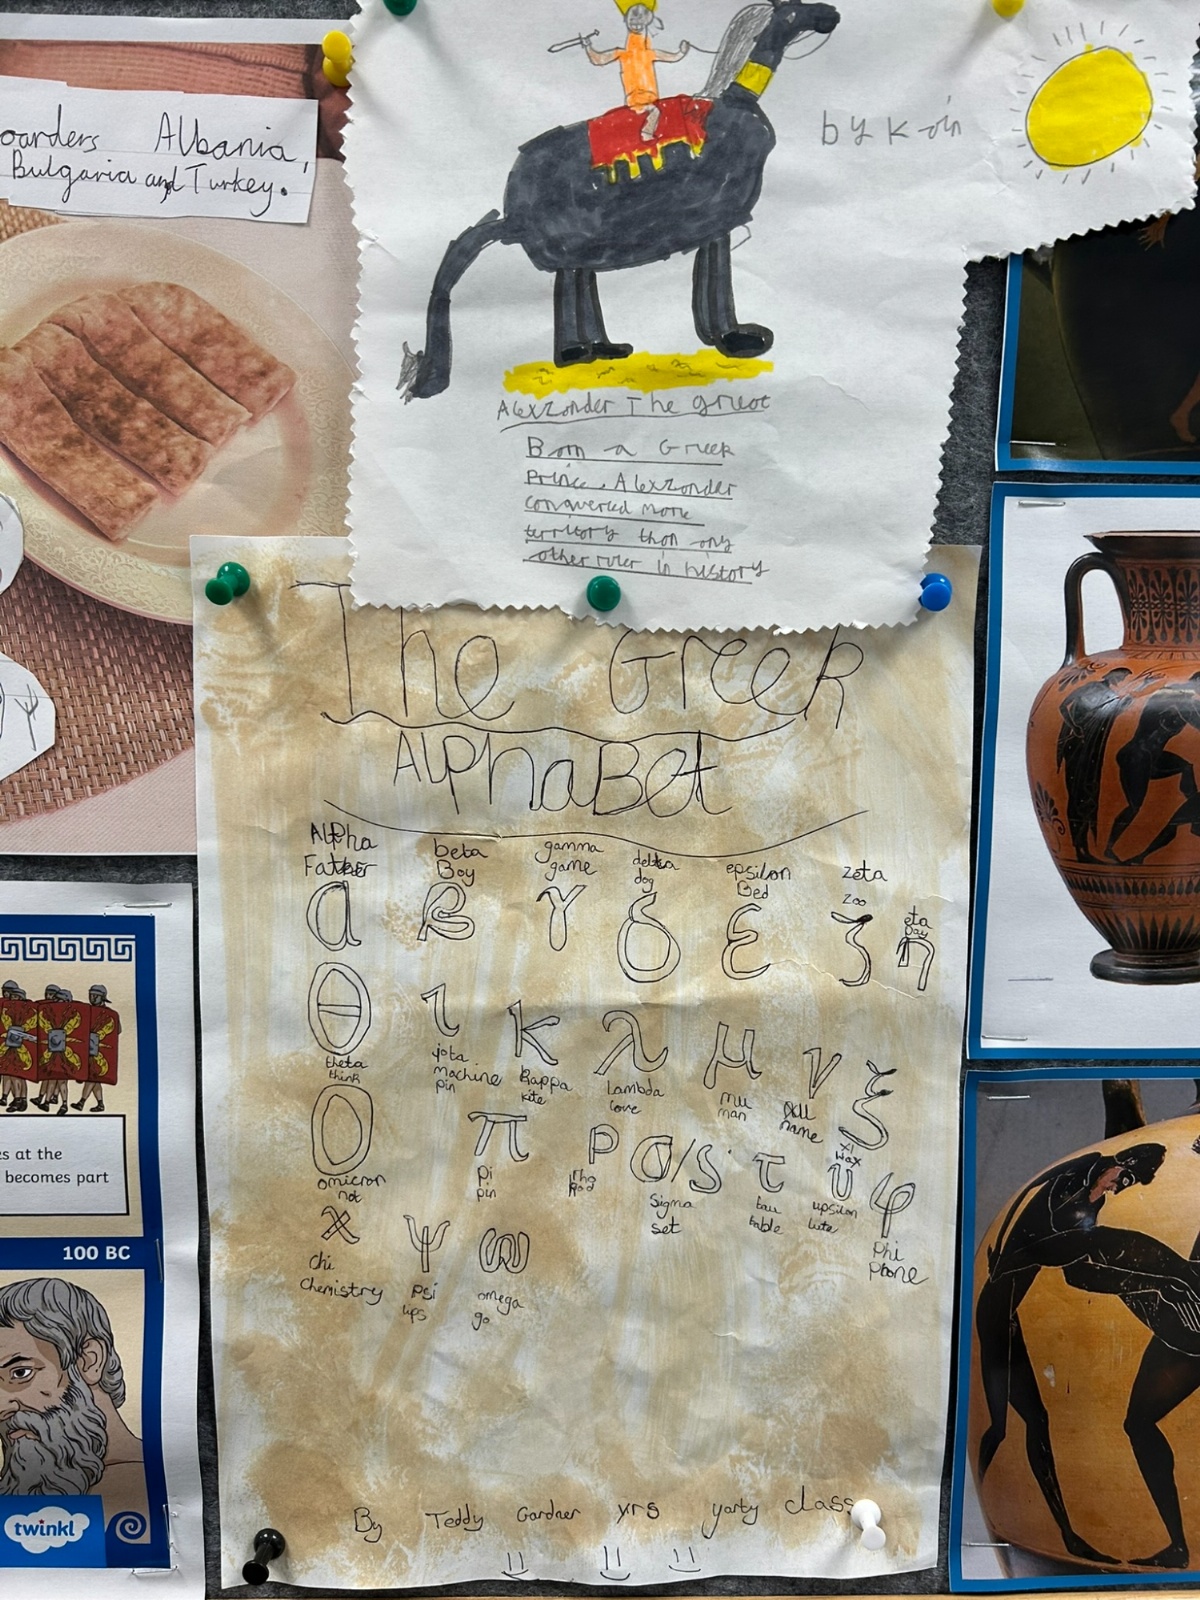 oarders Albania,
Bulgaria and Turkey.
by Koin
Alexzonder The great
Born a Greek
Prince, Alexzonder
conquered more
territory than any
other ruler in history
The Greek
AlphaBet
Alpha
Father
α
beta
Boy
β
gamma
game
γ
delta
dog
δ
epsilon
Bed
ε
zeta
zoo
ζ
eta
Day
η
θ
theta
think
ι
iota
machine
pin
κ
kappa
kite
λ
lambda
love
μ
mu
man
ν
nu
name
ξ
xi
wax
ο
omicron
not
π
pi
pin
ρ
rho
Rod
σ/ς
sigma
set
τ
tau
table
υ
upsilon
lute
φ
phi
phone
χ
chi
chemistry
ψ
psi
lips
ω
omega
go
By Teddy Gardner yrs yarty class
s at the
becomes part
100 BC
twinkl